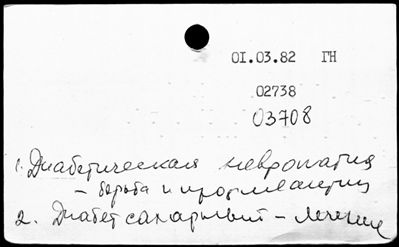 01.03.82 ГН
02738
03708
1. Диабетическая невропатия
- борьба и профилактика
2. Диабет сахарный - лечение